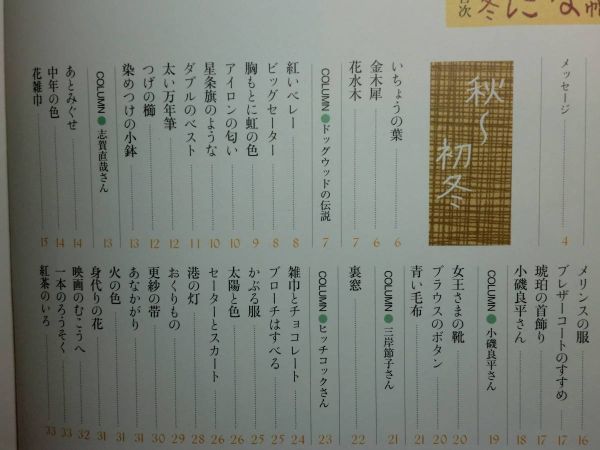 目次
冬
メッセージ 4
秋〜初冬
いちょうの葉 6
金木犀 6
花水木 7
COLUMN●ドッグウッドの伝説 7
紅いベレー 8
ビッグセーター 8
胸もとに虹の色 9
アイロンの匂い 10
星条旗のような 10
ダブルのベスト 11
太い万年筆 12
つげの櫛 12
染めつけの小鉢 13
COLUMN●志賀直哉さん 13
あとみぐせ 14
中年の色 14
花雑巾 15
メリンスの服 16
ブレザーコートのすすめ 17
琥珀の首飾り 17
小磯良平さん 18
COLUMN●小磯良平さん 19
女王さまの靴 20
ブラウスのボタン 20
青い毛布 21
COLUMN●三岸節子さん 21
裏窓 22
COLUMN●ヒッチコックさん 23
雑巾とチョコレート 24
ブローチはすべる 25
かぶる服 25
太陽と色 26
セーターとスカート 26
港の灯 28
おくりもの 29
更紗の帯 30
あなかがり 31
火の色 31
身代りの花 31
映画のむこうへ 32
一本のろうそく 33
紅茶のいろ 33